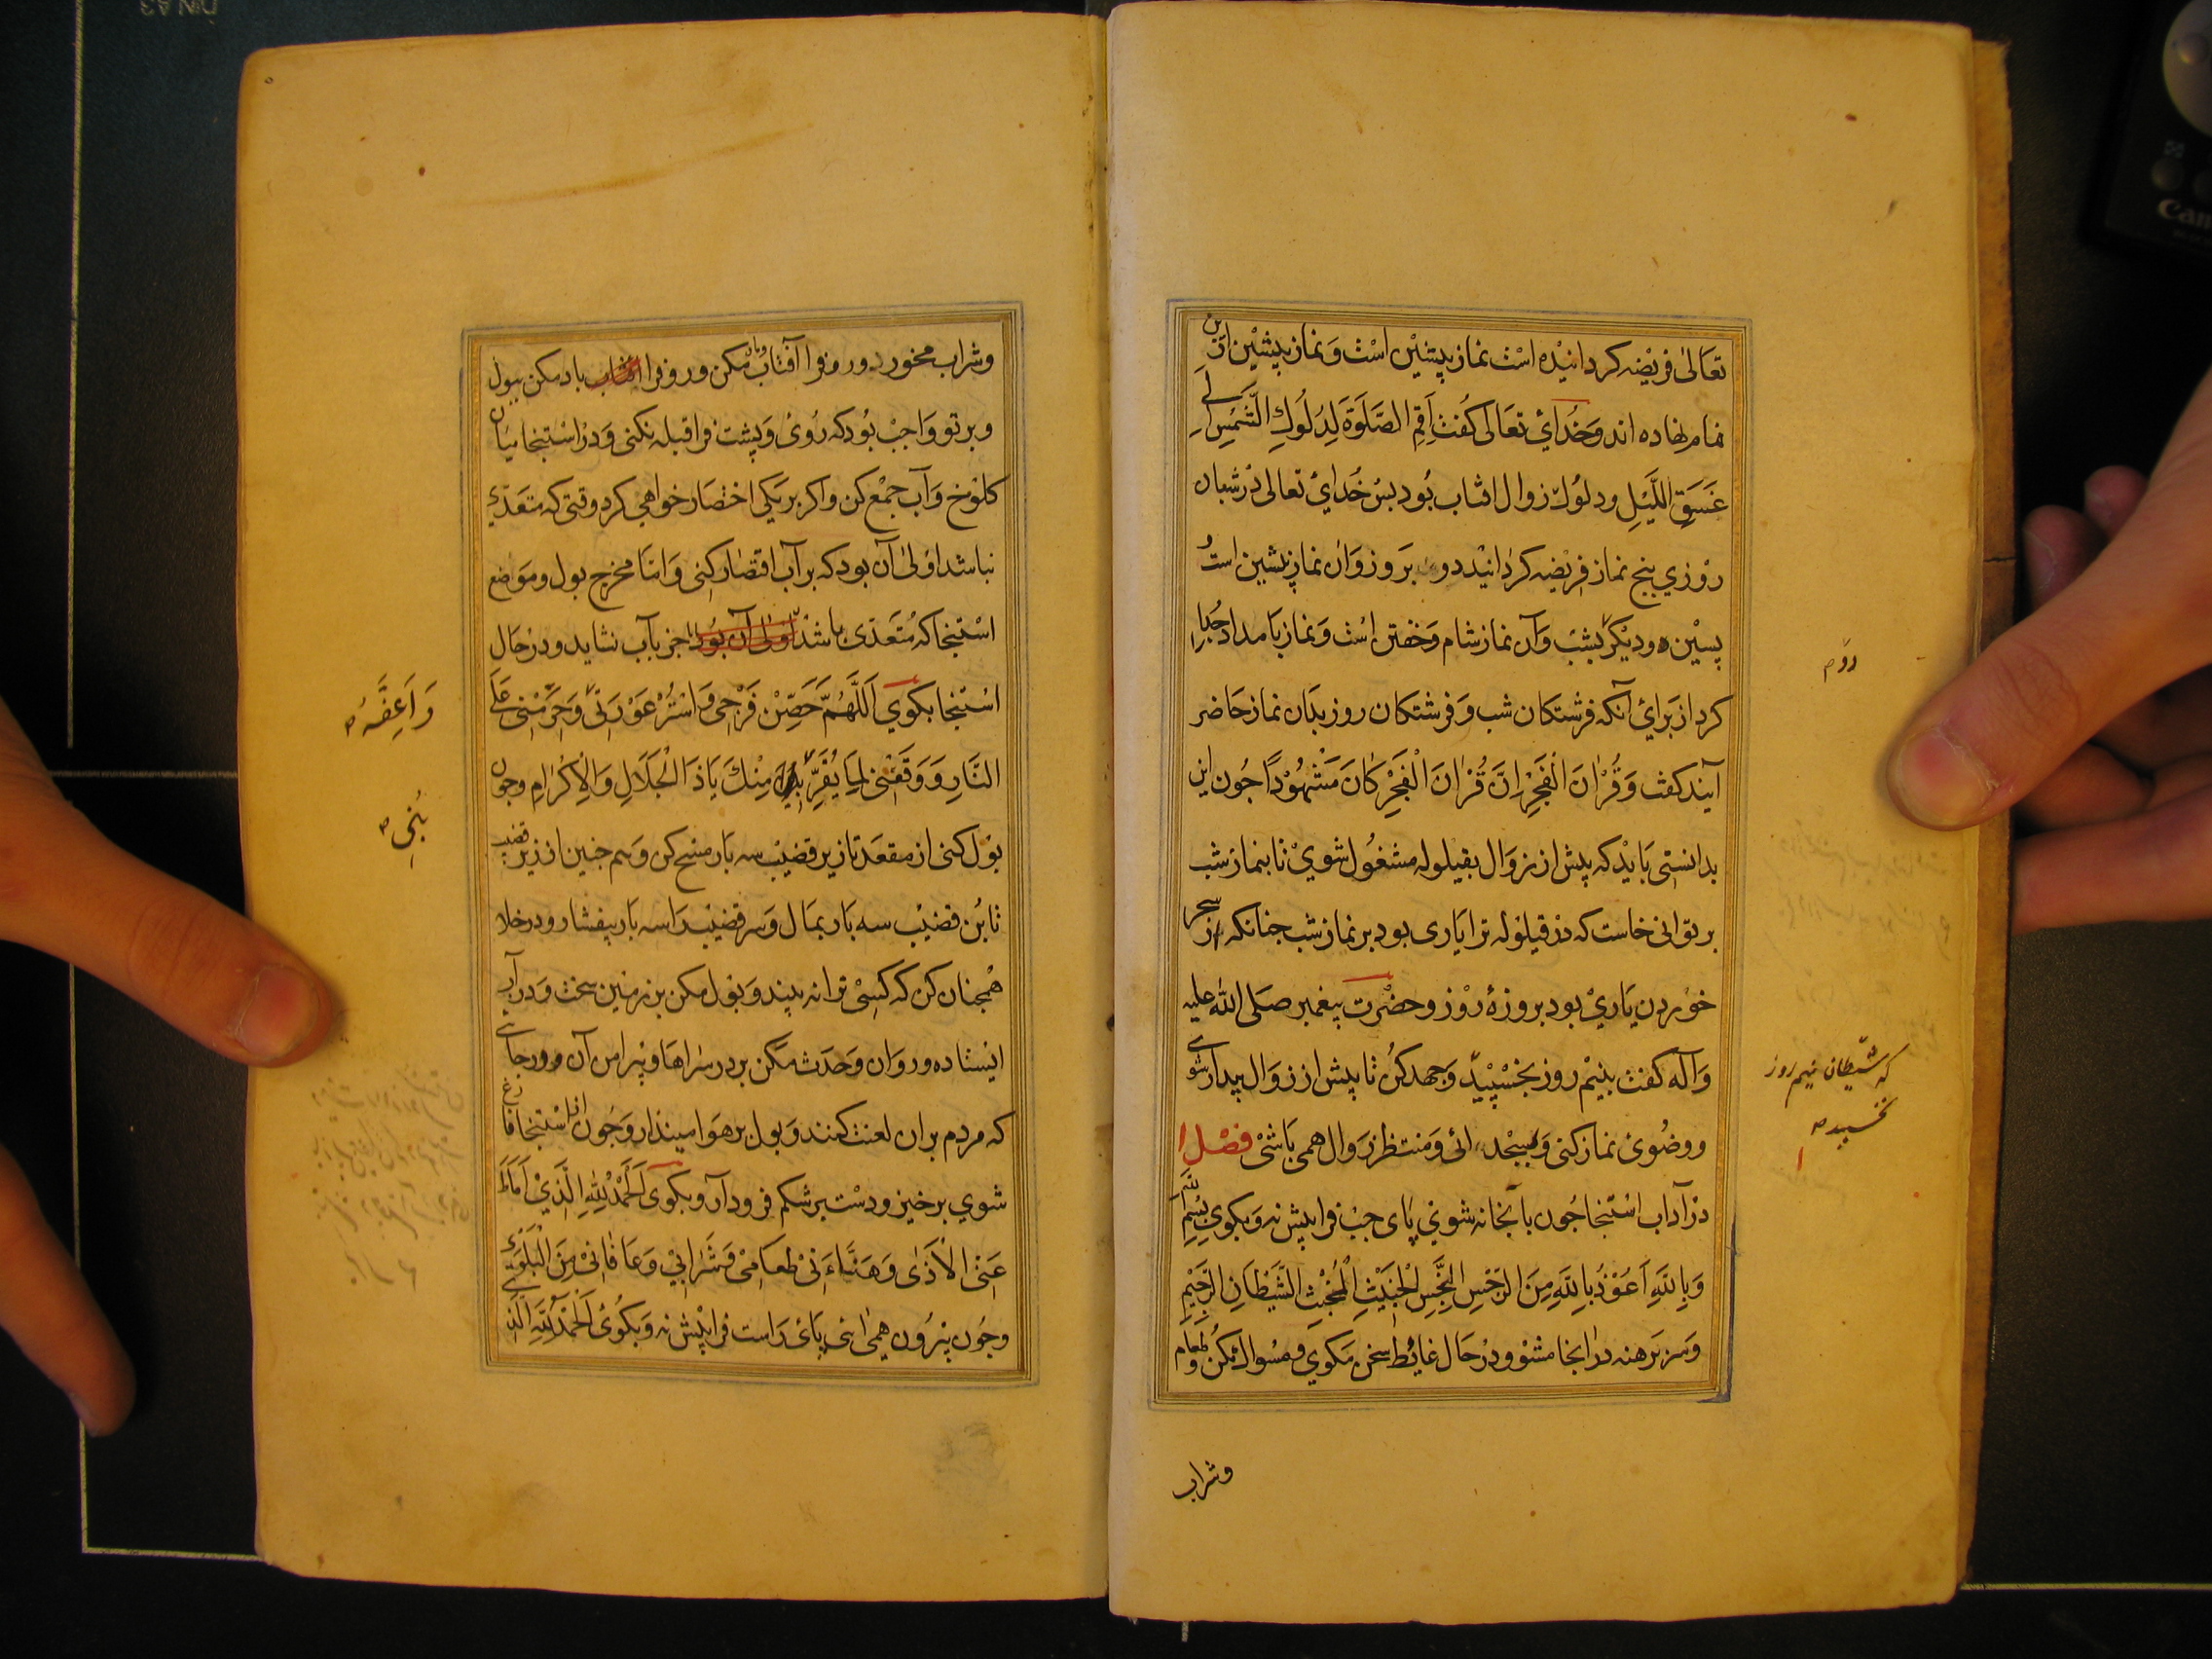 تعالی فریضه کردانیده است نماز پیشین است و نماز پیشین ازین
نام نهاده اند و خدای تعالی کفت اَقِمِ الصَّلوٰةَ لِدُلُوكِ الشَّمْسِ اِلٰی
غَسَقِ اللَّیْلِ و دلوك زوال افتاب بود بس خدای تعالی در شبان
روزی بنج نماز فریضه کردانید دو بروز و ان نماز پیشین است و
پسین و دیکر بشب و آن نماز شام و خفتن است و نماز بامداد جدا
کرد از برای آنکه فرشتکان شب و فرشتکان روز بدان نماز حاضر
آیند کفت وَ قُرْاٰنَ الْفَجْرِ اِنَّ قُرْاٰنَ الْفَجْرِ كَانَ مَشْهُوْدًا جون این
بدانستی باید که پیش از زوال بقیلوله مشغول شوی تا بنماز شب
بر توانی خاست که در قیلوله ترا یاری بود بر نماز شب جنانکه از سحر
خوردن یاری بود بروزۀ روز و حضرت پیغمبر صلی الله علیه
وآله کفت بنیم روز بخسپید و جهد کن تا پیش از زوال بیدار شوی
و وضوی نماز کنی و بمسجد ائی و منتظر زوال همی باشی فصل
در آداب استنجا جون بآبخانه شوی پای جب فرا پیش نه و بکوی بِسْمِ اللّٰهِ
وَبِاللّٰهِ اَعُوْذُ بِاللّٰهِ مِنَ الرِّجْسِ النَّجِسِ الْخَبِیْثِ الْمُخْبِثِ الشَّیْطَانِ الرَّجِیْمِ
و سر برهنه در ابخا مشو و در حال غائط سخن مکوی و مسواك مکن و طعام
دوم
که شیطان نیم روز
نخسبد
وشراب
وشراب مخور و رو فرا آفتاب و ماه مکن و رو فرا باد مکن ببول
و بر تو واجب بود که روی و پشت فرا قبله نکنی و در استنجا میان
کلوخ و آب جمع کن و اکر بر یکی اختصار خواهی کرد وقتی که متعدی
نباشد اولی آن بود که بر آب اقتصار کنی و اما مخرج بول و موضع
استنجا که متعدی باشد اولی آن بود جز بآب نشاید و در حال
استنجا بکوی اَللّٰهُمَّ حَصِّنْ فَرْجِی وَ اسْتُرْ عَوْرَتِی وَ حَرِّمْنِی عَلَی
النَّارِ وَ وَفِّقْنِی لِمَا یُقَرِّبُنِی مِنْكَ یَا ذَا الْجَلَالِ وَالْاِکْرَامِ و جون
بول کنی از مقعد تا زیر قضیب سه بار مسح کن و هم جنین از زیر قضیب
تا بن قضیب سه بار بمال و سر قضیب را سه بار بیفشار و در خلا
همجنان کن که کسی ترا نه بیند و بول مکن بر زمین سخت و در آب
ایستاده و روان و حدث مکن بر در سراها و پیرامن آن و در جای
که مردم بران لعنت کنند و بول بر هوا میندار و جون از استنجا فارغ
شوی برخیز و دست بر شکم فرود آر و بکوی اَلْحَمْدُ لِلّٰهِ الَّذِیْ اَمَاطَ
عَنِّی الْاَذٰی وَ هَنَّاءَنِیْ طَعَامِیْ وَ شَرَابِیْ وَ عَافَانِیْ مِنَ الْبَلْوٰی
و جون بیرون همی ائی پای راست فرا پیش نه و بکوی اَلْحَمْدُ لِلّٰهِ الَّذِی
وَ اَعِفَّهُ